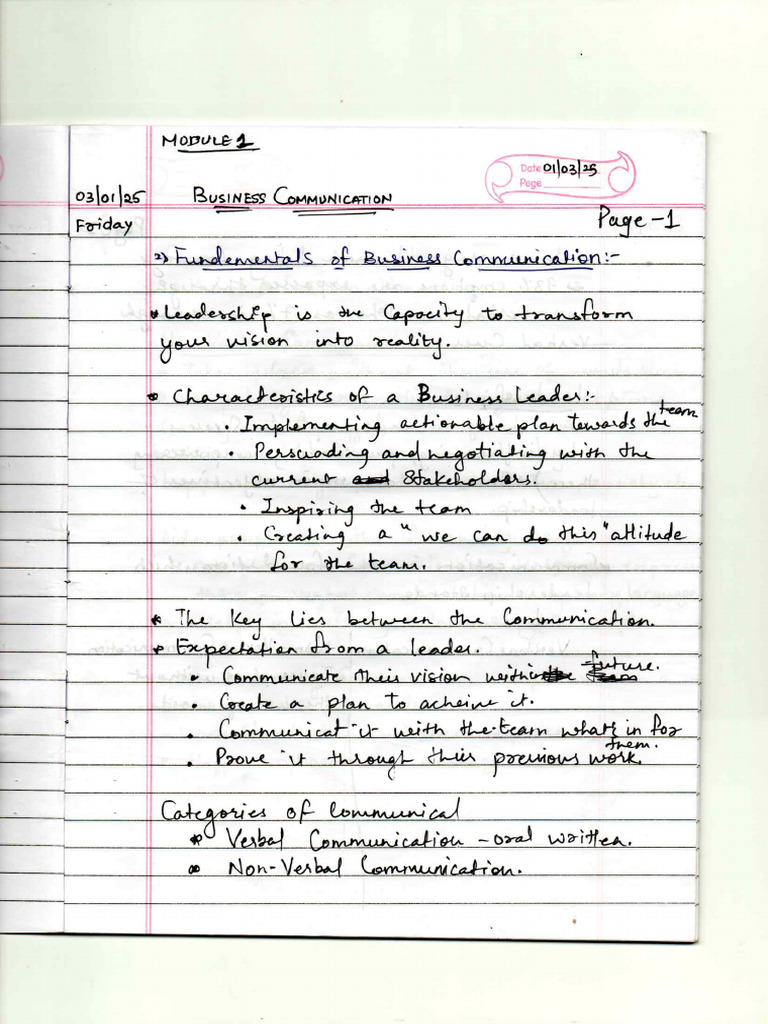 MODULE 1
Date 01/03/25
Page
03/01/25 BUSINESS COMMUNICATION
Friday
Page - 1
Fundementals of Business Communication:-
Leadership is the Capacity to transform
your vision into reality.
Characteristics of a Business Leader:-
• Implementing actionable plan towards the team
• Persuading and negotiating with the
current Stakeholders.
• Inspiring the team
• Creating a "we can do this" attitude
for the team.
* The key lies between the Communication.
* Expectation from a leader.
• Communicate their vision within future.
• Create a plan to acheive it.
• Communicat it with the team what's in for them.
• Prove it through their previous work.
Categories of Communical
* Verbal Communication - oral written.
Non-Verbal Communication.